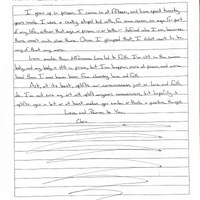 I grew up in prison. I came in at fifteen, and have spent twenty
years inside. I was a really stupid kid with, for some reason, no
of my life, either that age, or prison — or both — defined who I was, because
there wasn't much else there. Once I grasped that, I didn't want to be
any of that any more.
Love made them difference. Love led to faith. I'm still in the same
body, and my body is still in prison, but I'm happier, more at peace, and more
loved than I ever have been from choosing love and faith.
Art, at its best, uplifts our consciousness just as love and faith
do. I'm not sure my art will uplift anyone's consciousness, but hopefully it
uplifts you a bit, or at least, makes you smile or think a positive thought.
Love and Peace to You,
Chris